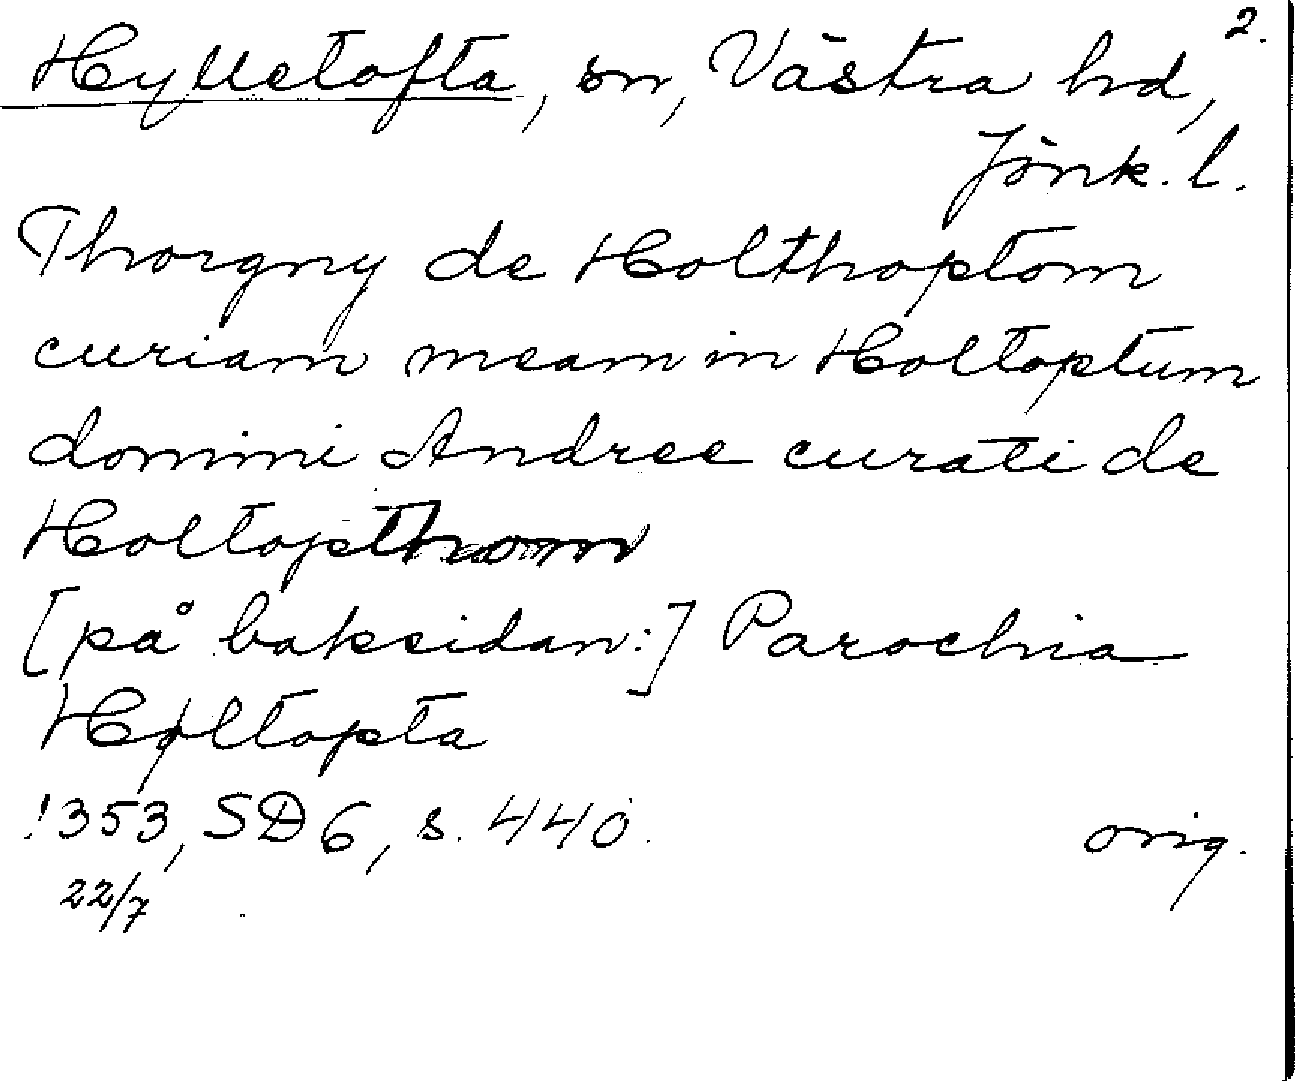 2.
Hylletofta, sn, Västra hd,
Jönk. l.
Thorgny de Holthoptom
curiam meam in Holtoptum
domini Andree curati de
Holtopthom
[på baksidan:] Parochia
Høltopta
1353, SD 6, s. 440. orig.
22/7